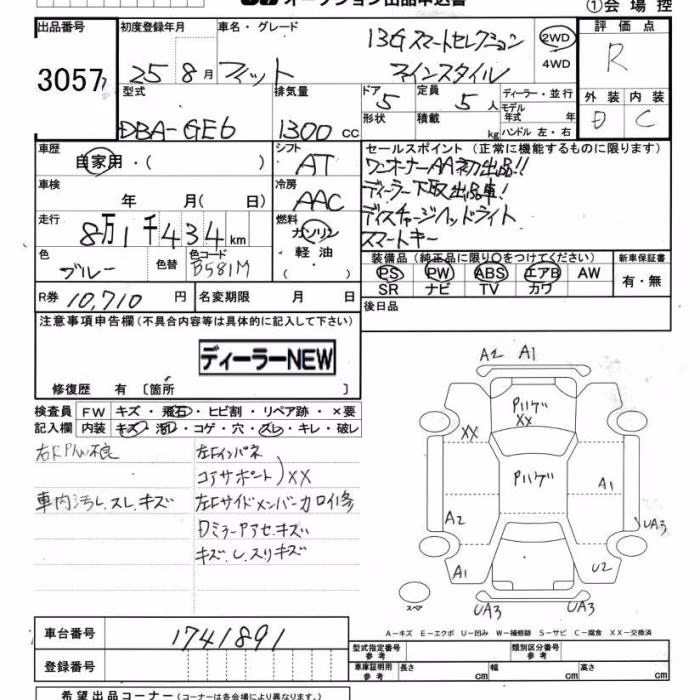 オークション出品申込書
①会場控
出品番号 初度登録年月 車名・グレード 評価点
3057 25 8月 フィット 13G スマートセレクション ファインスタイル 2WD 4WD R
型式 排気量 ドア 5 定員 5人 ディーラー・並行 外装 内装
DBA-GE6 1300 CC 形状 積載 kg モデル年式 年 ハンドル 左・右 D C
車歴 自家用・( ) シフト AT セールスポイント (正常に機能するものに限ります)
ワンオーナーAA初出品!!
車検 年 月( 日) 冷房 AAC ディーラー下取出品車!
走行 8万1千434km 燃料 ガソリン・軽油・( ) ディスチャージヘッドライト
スマートキー
色 ブルー 色替 色コード B581M 装備品 (純正品に限り○をつけてください) 新車保証書
PS PW ABS エアB AW 有・無
SR ナビ TV カワ
R券 10,710円 名変期限 月 日 後日品
注意事項申告欄(不具合内容等は具体的に記入して下さい)
ディーラーNEW
修復歴 有 〔箇所 〕
検査員 FW キズ・飛石・ヒビ割・リペア跡・×要
記入欄 内装 キズ・汚レ・コゲ・穴・スレ・キレ・破レ
左Fインパネ
コアサポート)XX
車内汚レ、スレ、キズ
左Fサイドメンバー
キズ
A2 A1
XX
XX
A1
A2
UA3
A1
U2
UA3 UA3
スペア
A-キズ E-エクボ U-凹み W-補修跡 S-サビ C-腐食 XX-交換済
車台番号 1741891
型式指定番号 参考 類別区分番号 参考
登録番号
車庫証明用 参考 長さ cm 幅 cm 高さ cm
希望出品コーナー (コーナーは各会場により異なります)